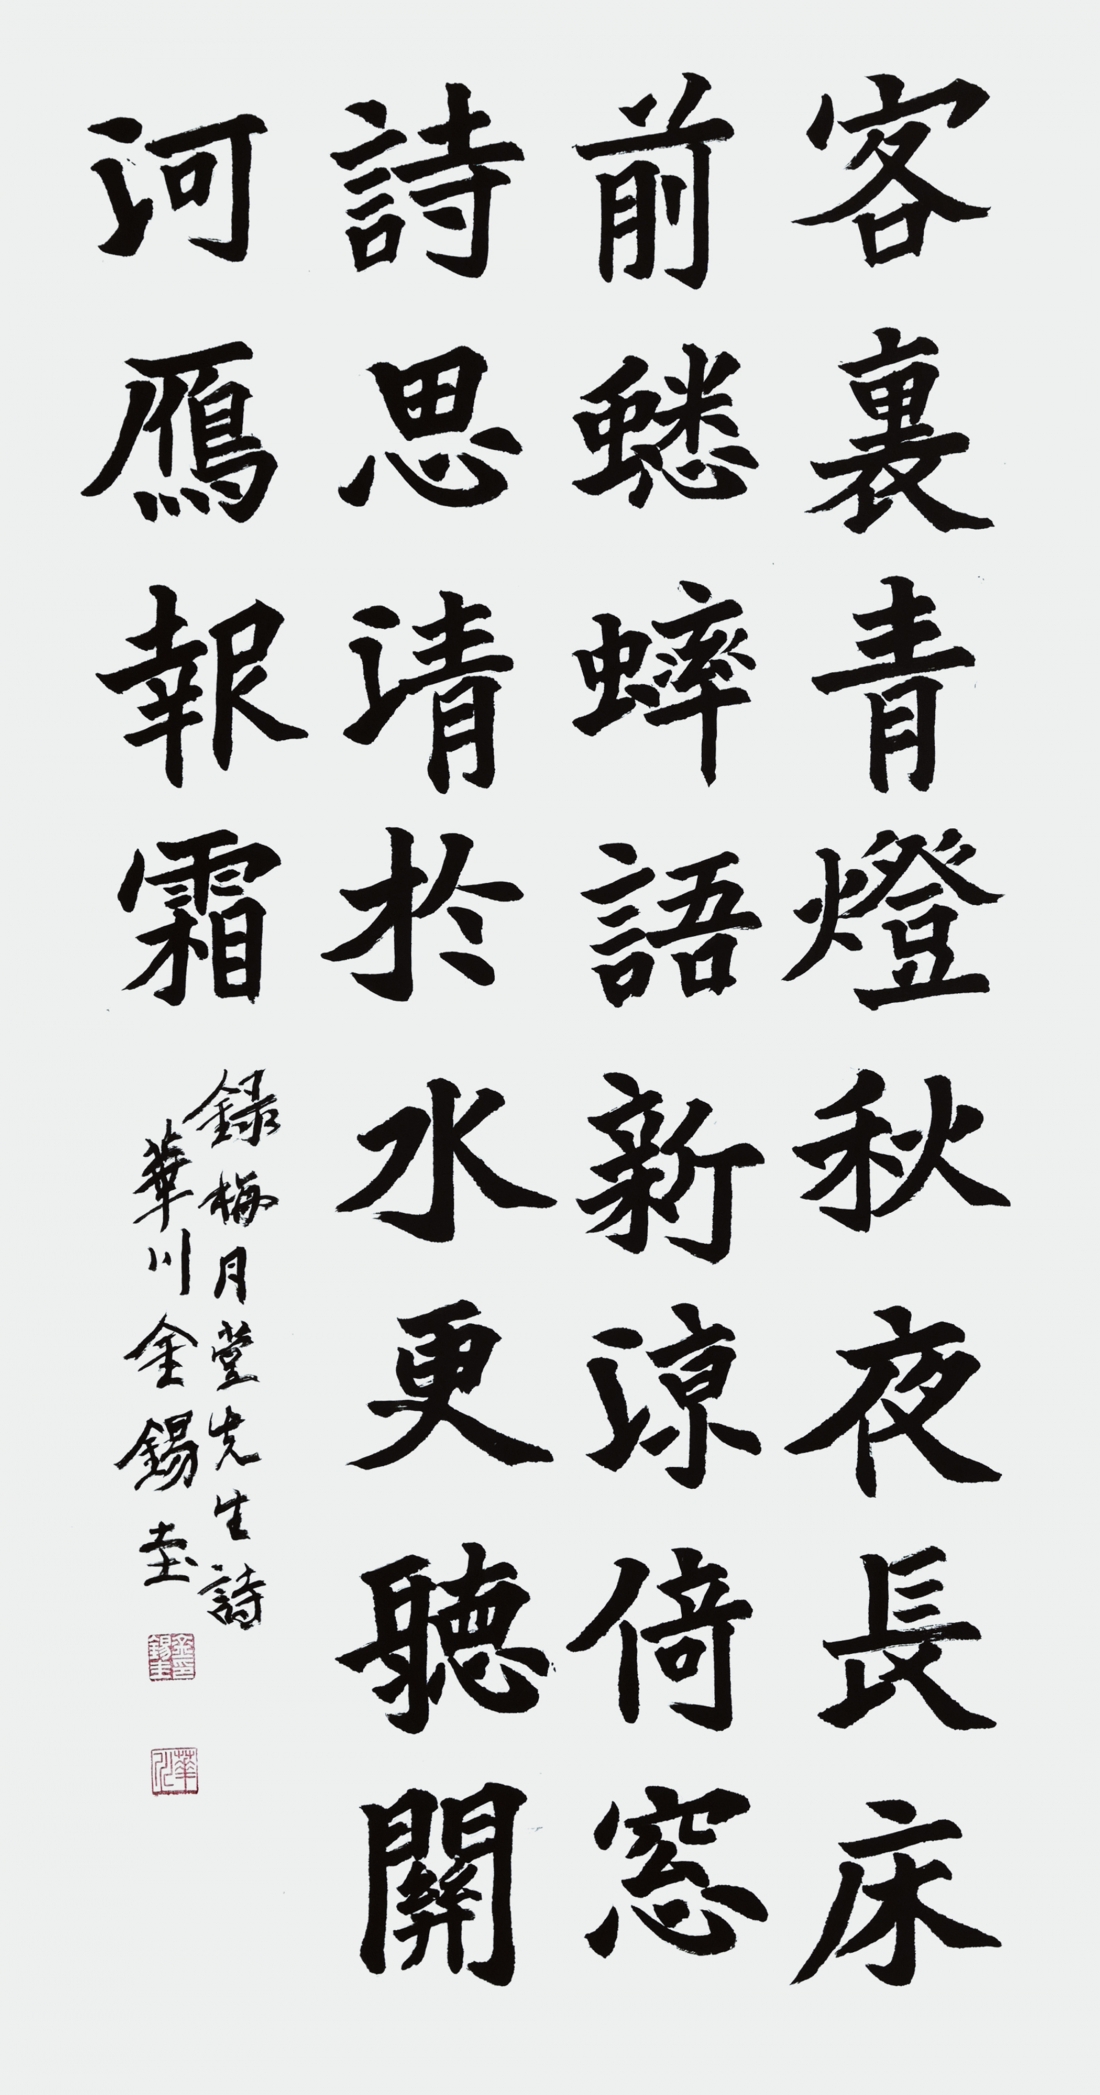 客裏青燈秋夜長床
前蟋蟀語新凉倚窓
詩思清於水更聽關
河鴈報霜
錄梅月堂先生詩
華川金錫圭
金錫圭印
華川